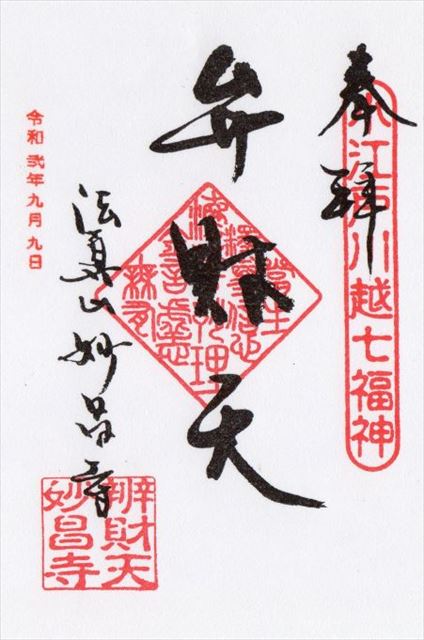 奉拝
小江戸川越七福神
弁財天
法眞山妙昌寺
令和弐年九月九日
辨財天
妙昌寺